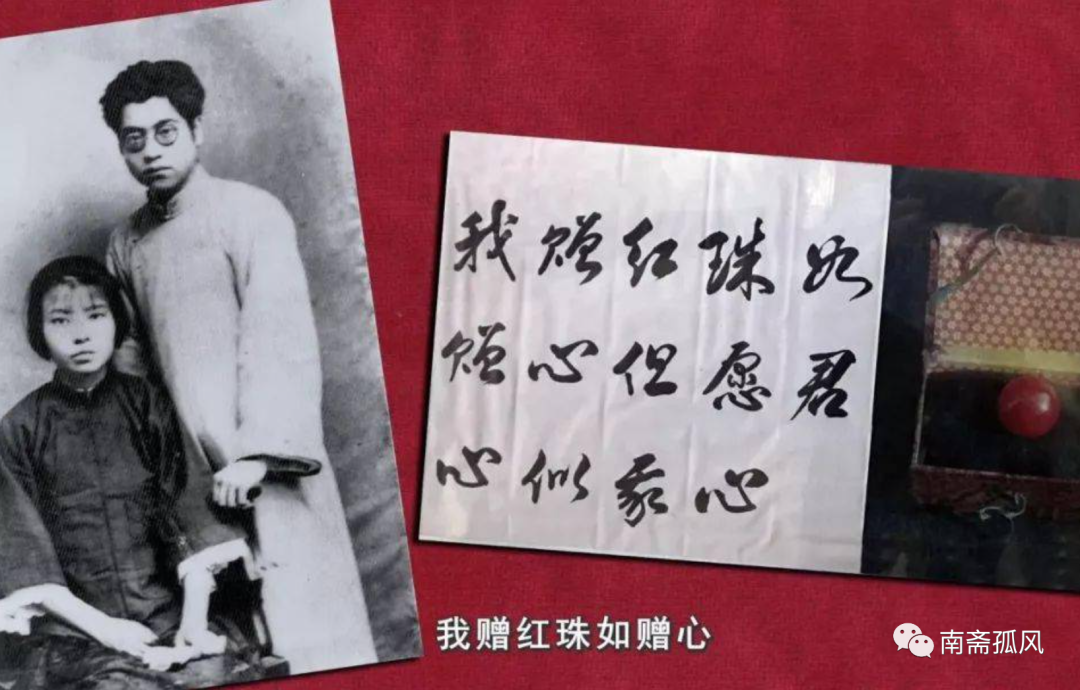 我赠红珠如
赠心但愿君
心似我心
我赠红珠如赠心
南斋孤风